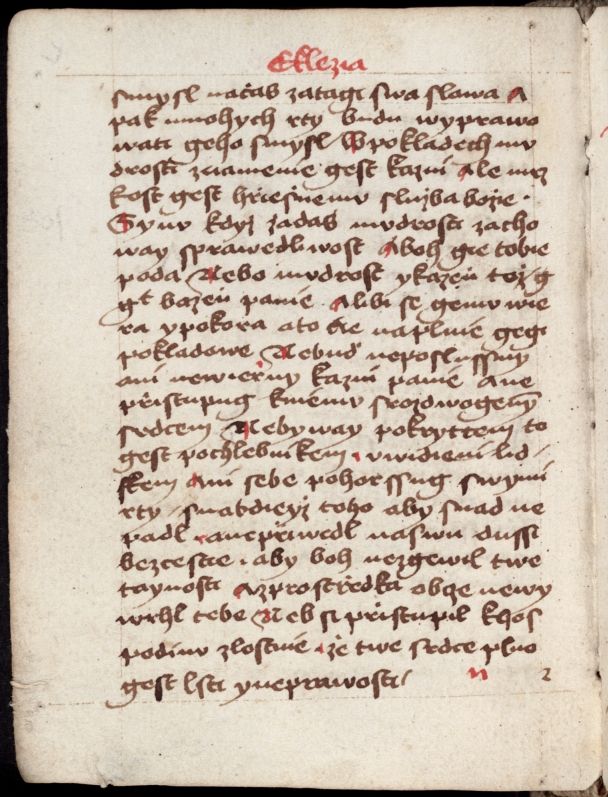 Eklezia
smysl načas zatagi swa slowa A
pak mnohych rty budu wyprawo
wati geho smysl W pokladech mu
drosti znamenie gest kazni Ale mrz
kost gest hřiesnemu služba božie ·
Synu kdyz žadas mudrosti zacho
way sprawedliwost A boh gie tobie
poda Nebo mudrost y kazen toz g
gt bazen panie A libi se gemu wie
ra y pokora a to že naplnie gegi
pokladowe Nebud neposlussny
ani newierny kazni panie A ne
přistupug k niemu s rozdwogeny
srdcem Nebyway pokrytcem to
gest pochlebnikem w widieni lid
skem Ani sebe pohorssug swymi
rty / snabdieyž toho aby snad ne
padl a nepřiwedl na swu dussi
bezcestie · aby boh nezgewil twe
taynosti A z prostředka obce newy
wrhl tebe Neb si přistupil k hos
podinu zlostnie že twe srdce plno
gest lsti y neprawosti /